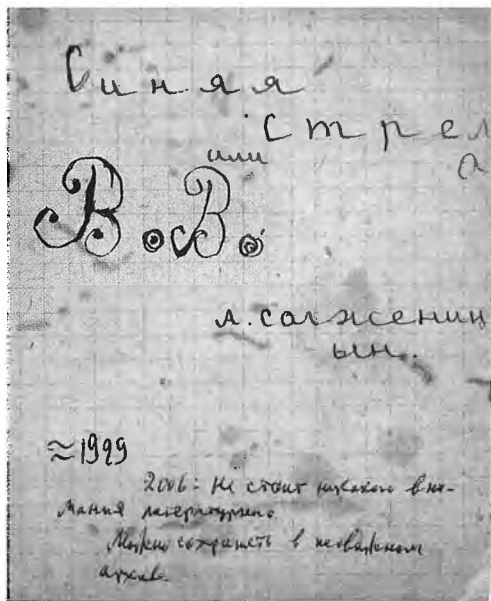 Синяя
Стрел
или
а
В.В.
А. Солженин
ын.
≈1929
2006: Не стоит никакого вни-
мания литературного
Можно сохранить в неважном
архиве.